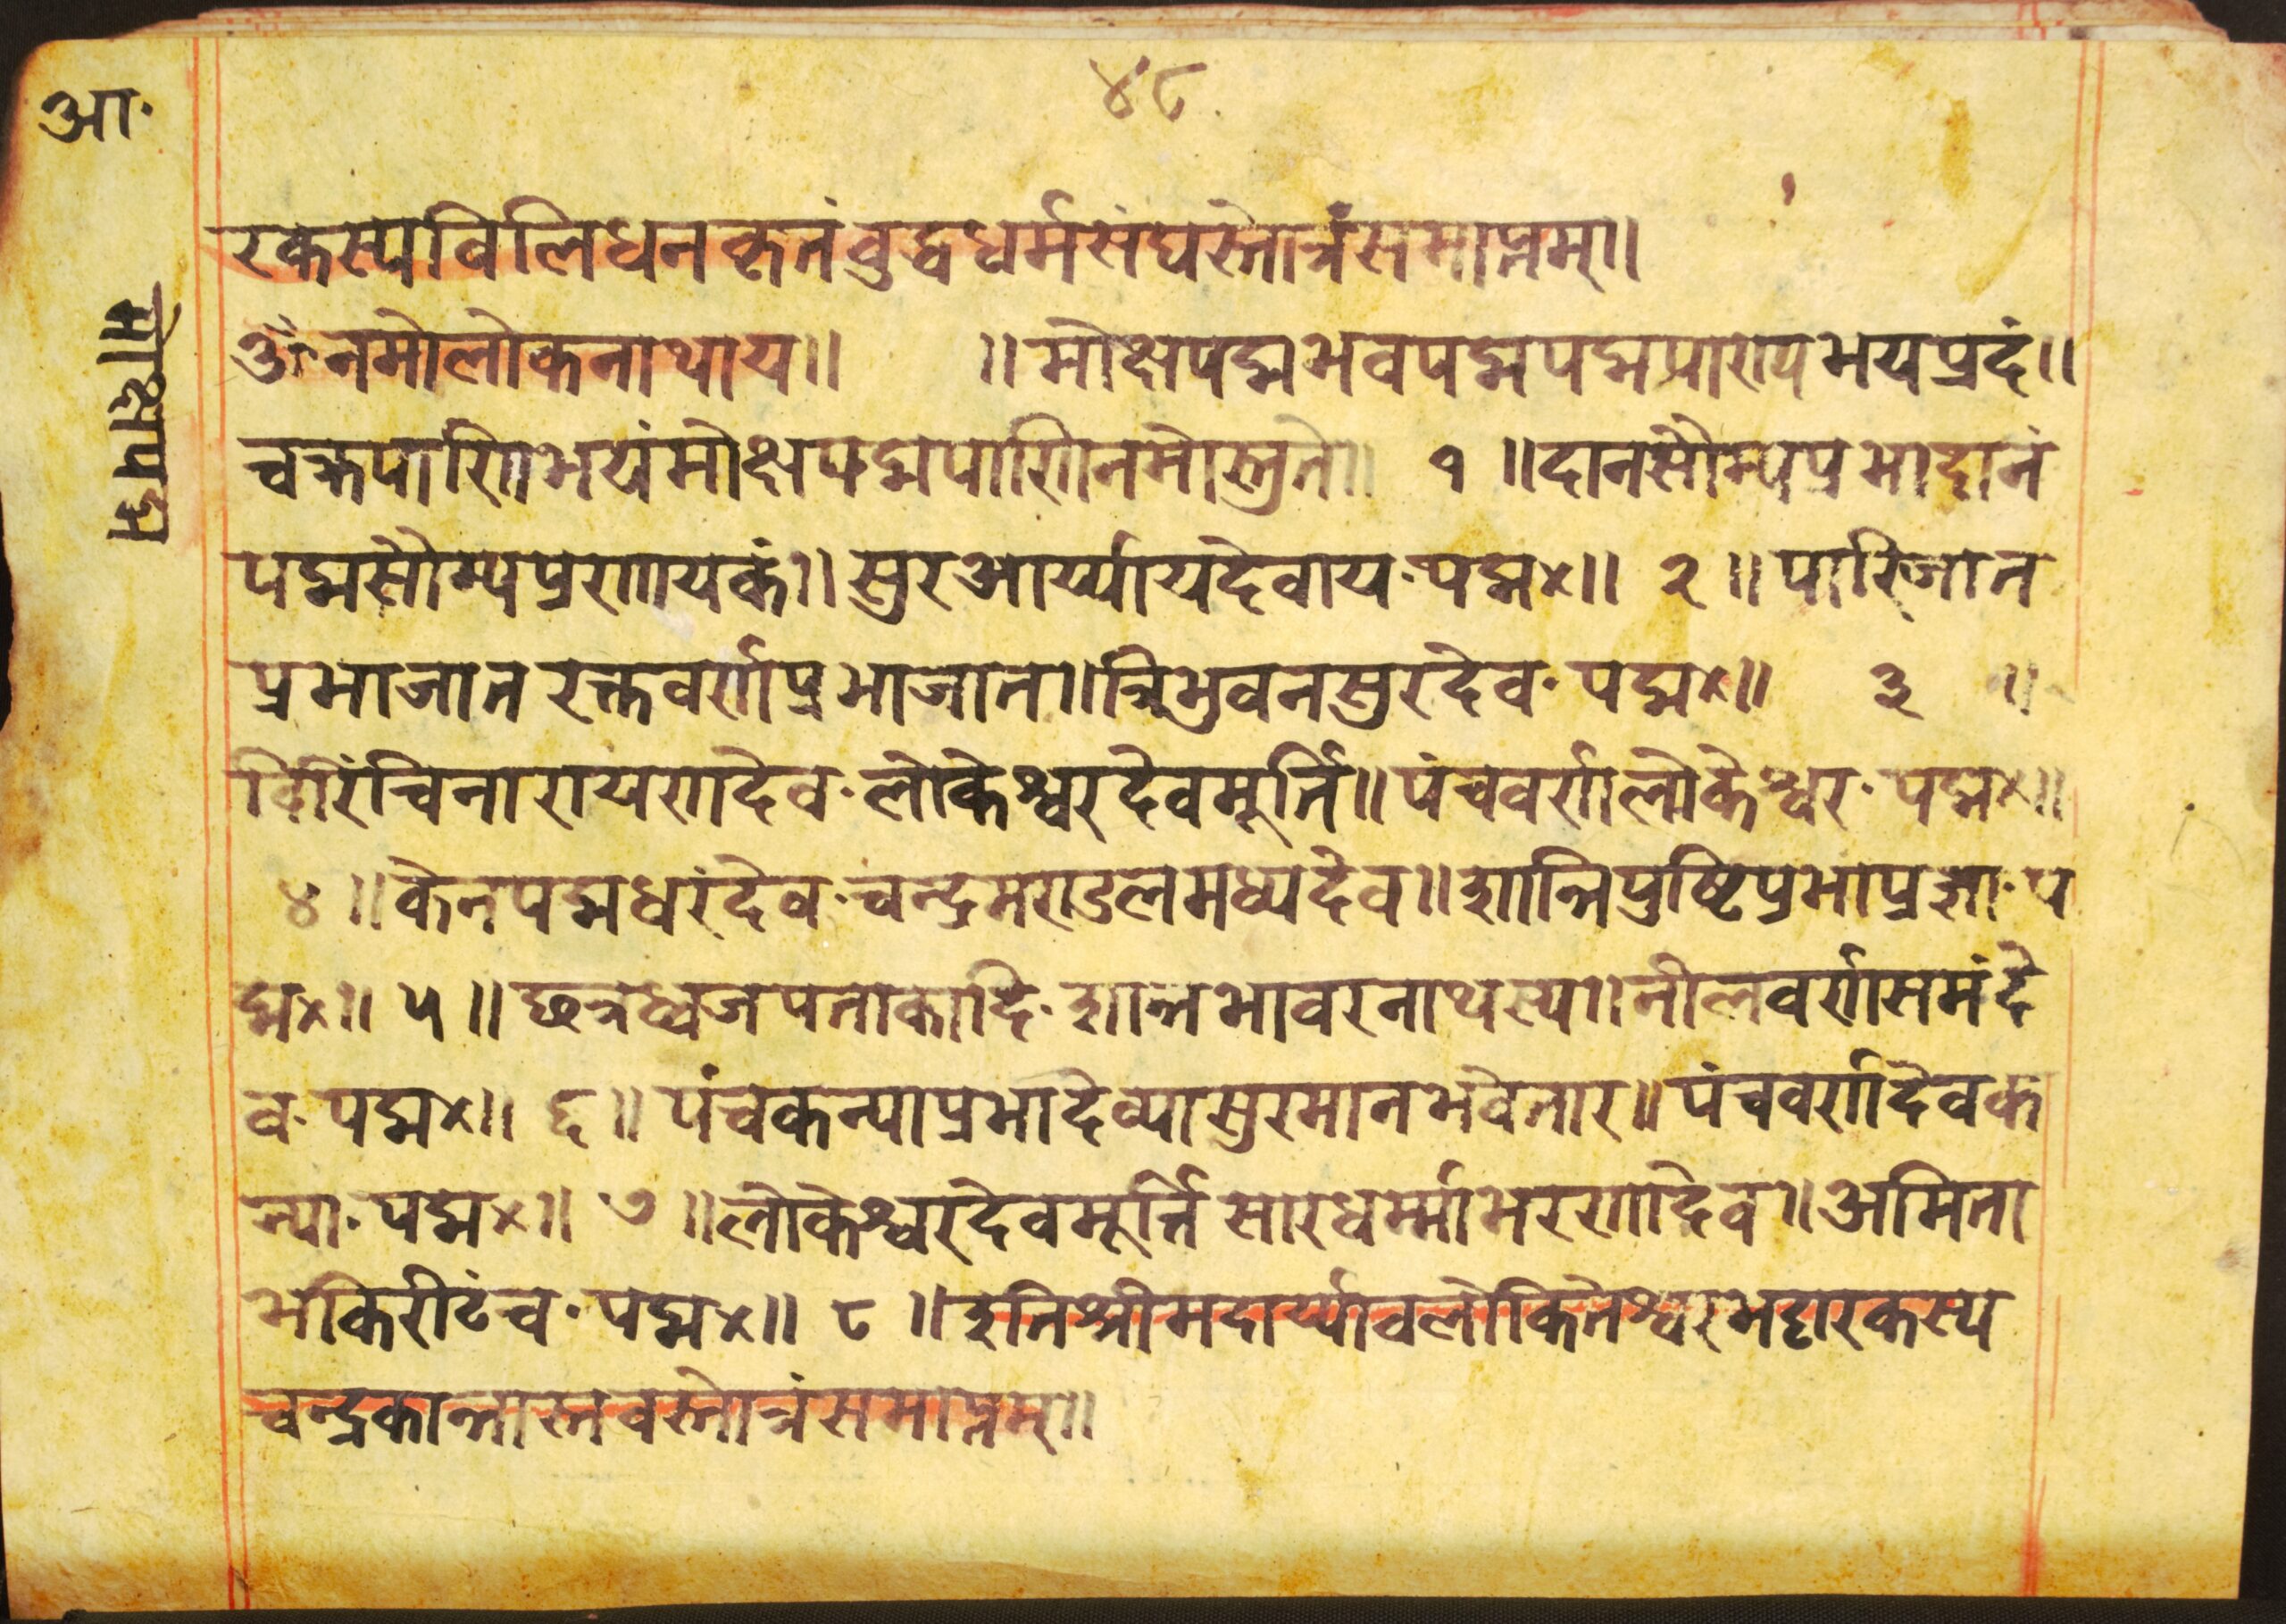 ४८
आ॰
मोक्षपद्म
रकस्यविलिधनकृतंवुद्धधर्मसंघस्तोत्रंसमाप्तम्॥
ॐनमोलोकनाथाय॥ ॥मोक्षपद्मभवपद्मपद्मपाराय भयप्रदं॥
चक्रपाणिभयंमोक्षपद्मपाणिनमोस्तुते॥ १ ॥दानसौम्यप्रभादानं
पद्मसौम्यप्रणायकं॥सुरआर्य्यायदेवाय॰पद्म×॥ २ ॥पारिजात
प्रभाजात रक्तवर्णप्रभाजात॥त्रिभुवनसुरदेव॰पद्म×॥ ३ ॥
विरिंचिनारायणदेव॰लोकेश्वरदेवमूर्त्ति॥पंचवर्णलोकेश्वर॰पद्म×॥
४ ॥केनपद्मधरंदेव॰चन्द्रमण्डलमध्यदेव॥शान्तिपुष्टिप्रभाप्रज्ञा॰प
द्म×॥ ५ ॥छत्रध्वजपताकादि॰शान्तभावरनाथस्य॥नीलवर्णसमंदे
व॰पद्म×॥ ६ ॥पंचकन्याप्रभादेव्यासुरमानभवेतार॥पंचवर्णदेवक
न्या॰पद्म×॥ ७ ॥लोकेश्वरदेवमूर्त्ति सारधर्म्माभरणदेव॥अमिता
भकिरीटंच॰पद्म×॥ ८ ॥इतिश्रीमदार्य्यावलोकितेश्वरभट्टारकस्य
चन्द्रकान्तास्तवस्तोत्रंसमाप्तम्॥